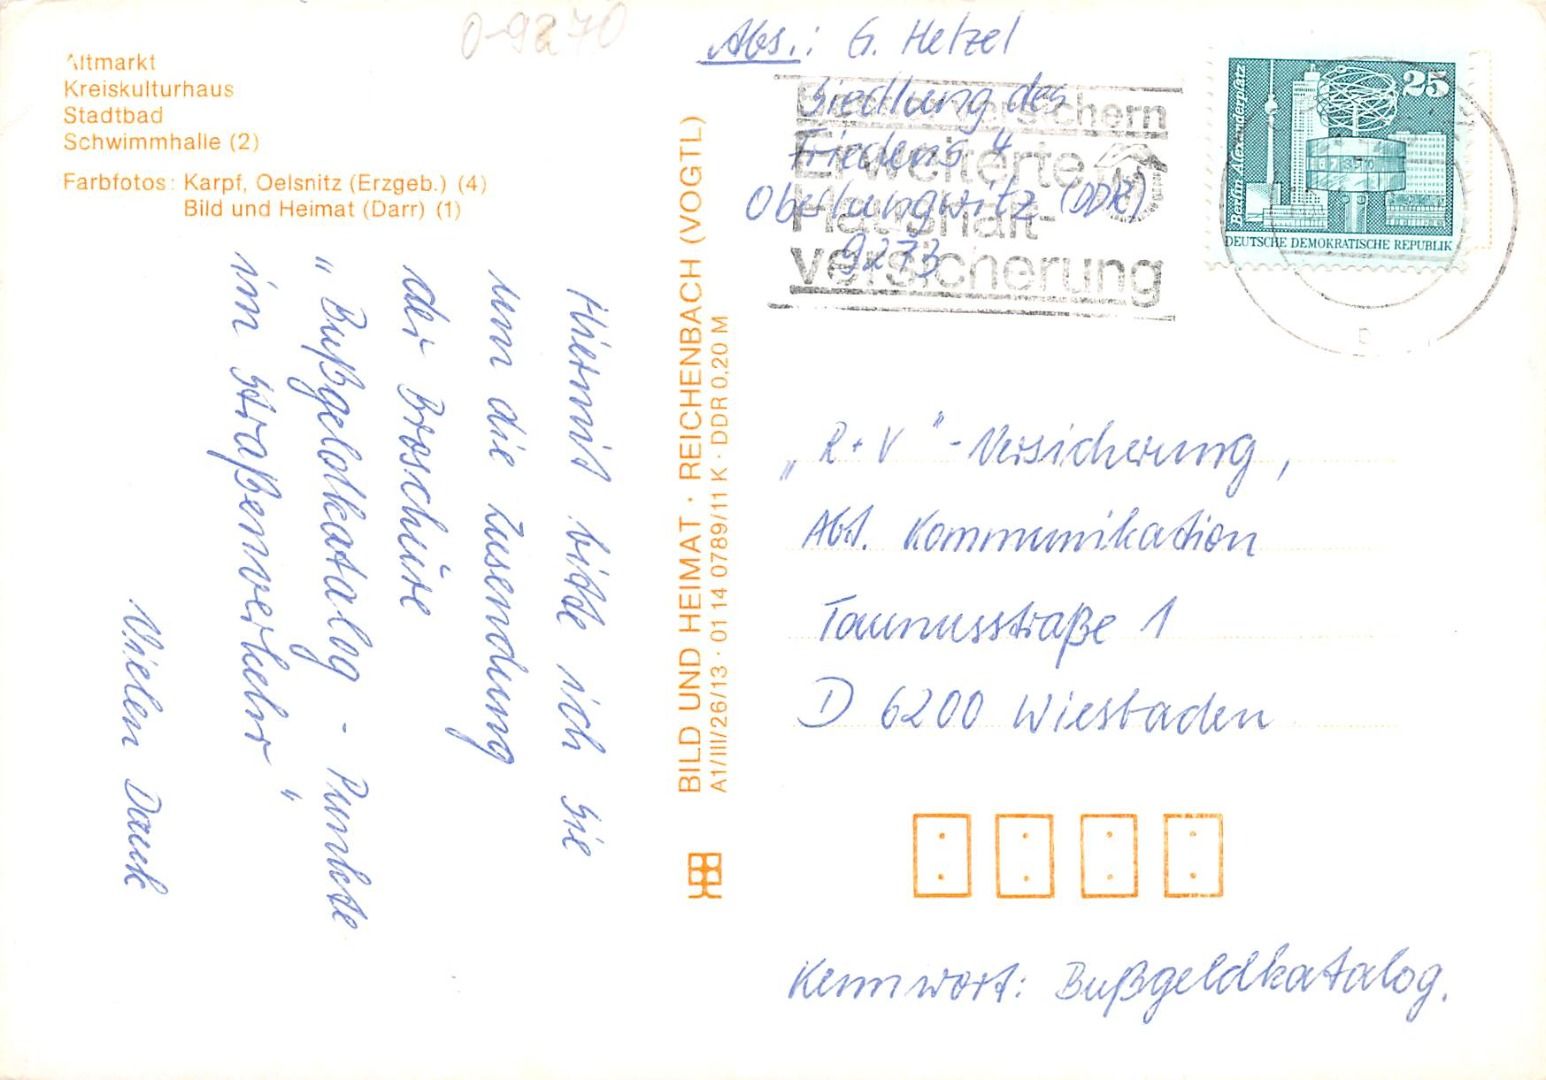 0-9270
Altmarkt
Kreiskulturhaus
Stadtbad
Schwimmhalle (2)
Farbfotos: Karpf, Oelsnitz (Erzgeb.) (4)
Bild und Heimat (Darr) (1)
Hiermit bitte ich Sie
um die Zusendung
der Broschüre
"Bußgeldkatalog - Punkte
im Straßenverkehr"
Vielen Dank
BILD UND HEIMAT · REICHENBACH (VOGTL)
A1/III/26/13 · 01 14 0789/11 K · DDR 0,20 M
Abs.: G. Hetzel
Siedlung des
Friedens 4
Oberlungwitz (DDR)
9273
versichern
Erweiterte
Haushalt-
versicherung
Berlin Alexanderplatz
25
DEUTSCHE DEMOKRATISCHE REPUBLIK
„R+V"-Versicherung,
Abt. Kommunikation
Taunusstraße 1
D 6200 Wiesbaden
Kennwort: Bußgeldkatalog.